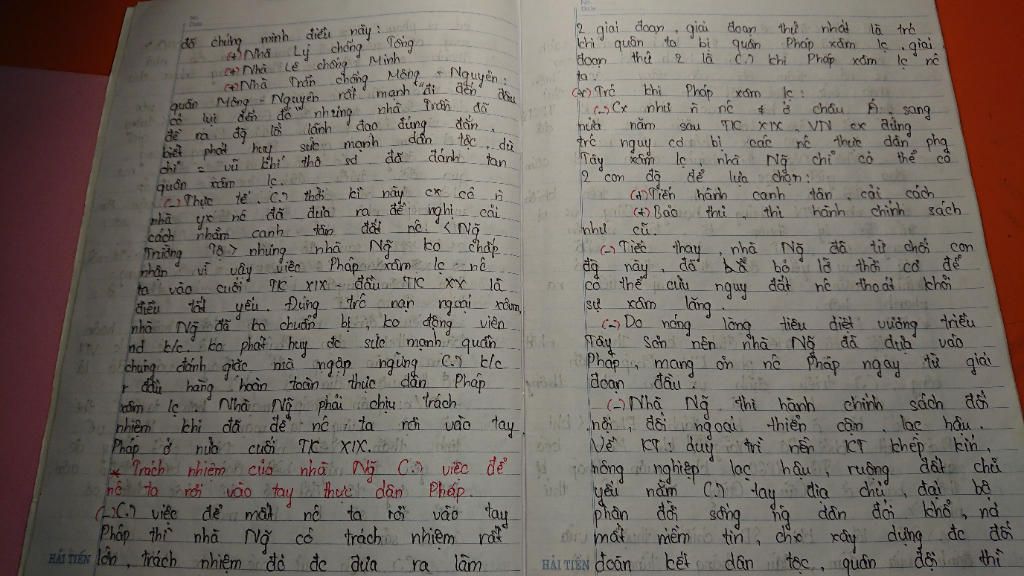 No.
Date
đã chứng minh điều này:
(+) Nhà Lý chống Tống
(+) Nhà Lê chống Minh
(+) Nhà Trần chống Mông - Nguyên:
quân Mông - Nguyên rất mạnh đi đến đâu
cỏ lụi đến đó nhưng nhà Trần đã
đề ra đg lối lãnh đạo đúng đắn,
biết phát huy sức mạnh dân tộc, dù
chỉ = vũ khí thô sơ đã đánh tan
quân xâm lc.
(-) Thực tế, thời kì này cx có
nhà yx nc đã đưa ra đề nghị cải
cách nhằm canh tân đất nc < Ng
Trường Tộ > nhưng nhà Ng ko chấp
nhận vì vậy việc Pháp xâm lc nc
ta vào cuối TK XIX - đầu TK XX là
điều tất yếu. Đứng trc nạn ngoại xâm,
nhà Ng đã ko chuẩn bị, ko động viên
nd k/c, ko phát huy đc sức mạnh quần
chúng đánh giặc mà ngập ngừng k/c
r đầu hàng hoàn toàn thực dân Pháp
xâm lc. Nhà Ng phải chịu trách
nhiệm khi đã để nc ta rơi vào tay
Pháp ở nửa cuối TK XIX.
* Trách nhiệm của nhà Ng việc để
nc ta rơi vào tay thực dân Pháp.
(-) việc để mất nc ta rơi vào tay
Pháp thì nhà Ng có trách nhiệm rất
lớn, trách nhiệm đó đc đưa ra làm
HẢI TIẾN
No.
Date
2 giai đoạn, giai đoạn thứ nhất là trc
khi quân ta bị quân Pháp xâm lc, giai
đoạn thứ 2 là khi Pháp xâm lc nc
ta:
(*) Trc khi Pháp xâm lc:
(-) Cx như nc ở châu Á, sang
nửa năm sau TK XIX, VN cx đứng
trc nguy cơ bị các nc thực dân phg
Tây xâm lc, nhà Ng chỉ có thể có
2 con đg để lựa chọn:
(+) Tiến hành canh tân, cải cách
(+) Bảo thủ thi hành chính sách
như cũ.
(-) Tiếc thay, nhà Ng đã từ chối con
đg này, đã bỏ lỡ thời cơ để
có thể cứu nguy đất nc thoát khỏi
sự xâm lăng.
(-) Do nóng lòng tiêu diệt vương triều
Tây Sơn nên nhà Ng đã dựa vào
Pháp, mang ơn nc Pháp ngay từ giai
đoạn đầu.
(-) Nhà Ng thi hành chính sách đối
nội, đối ngoại thiển cận, lạc hậu.
Về KT: duy trì nền KT khép kín,
nông nghiệp lạc hậu, ruộng đất chủ
yếu nằm tay địa chủ, đại bộ
phận đời sống ng dân đói khổ, nd
mất niềm tin, chx xây dựng đc đổi
đoàn kết dân tộc, quân đội thì
HẢI TIẾN